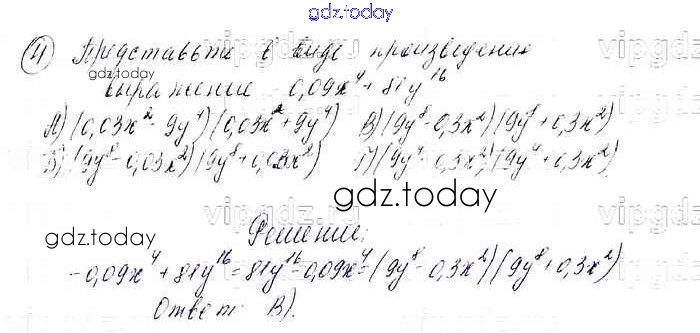 gdz.today
4) Представьте в виде произведения
gdz.today
выражение 0,09x⁴ + 81y¹⁶
А) (0,03x² - 9y⁴)(0,03x² + 9y⁴) В) (9y⁸ - 0,3x²)(9y⁸ + 0,3x²)
Б) (9y⁸ - 0,03x²)(9y⁸ + 0,03x²) Г) (9y⁴ - 0,3x²)(9y⁴ + 0,3x²)
gdz.today
gdz.today
Решение:
-0,09x⁴ + 81y¹⁶ = 81y¹⁶ - 0,09x⁴ = (9y⁸ - 0,3x²)(9y⁸ + 0,3x²)
Ответ: В).
gdz.today